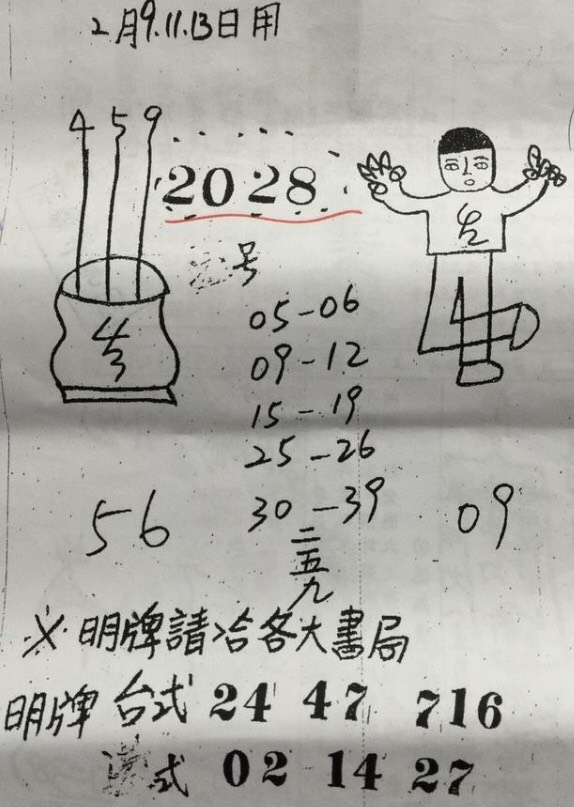 2月9.11.13日用
4 5 9
20 28
号
05-06
09-12
15-19
25-26
30-39
56
09
二五九
※明牌請洽各大書局
明牌 台式 24 47 716
式 02 14 27